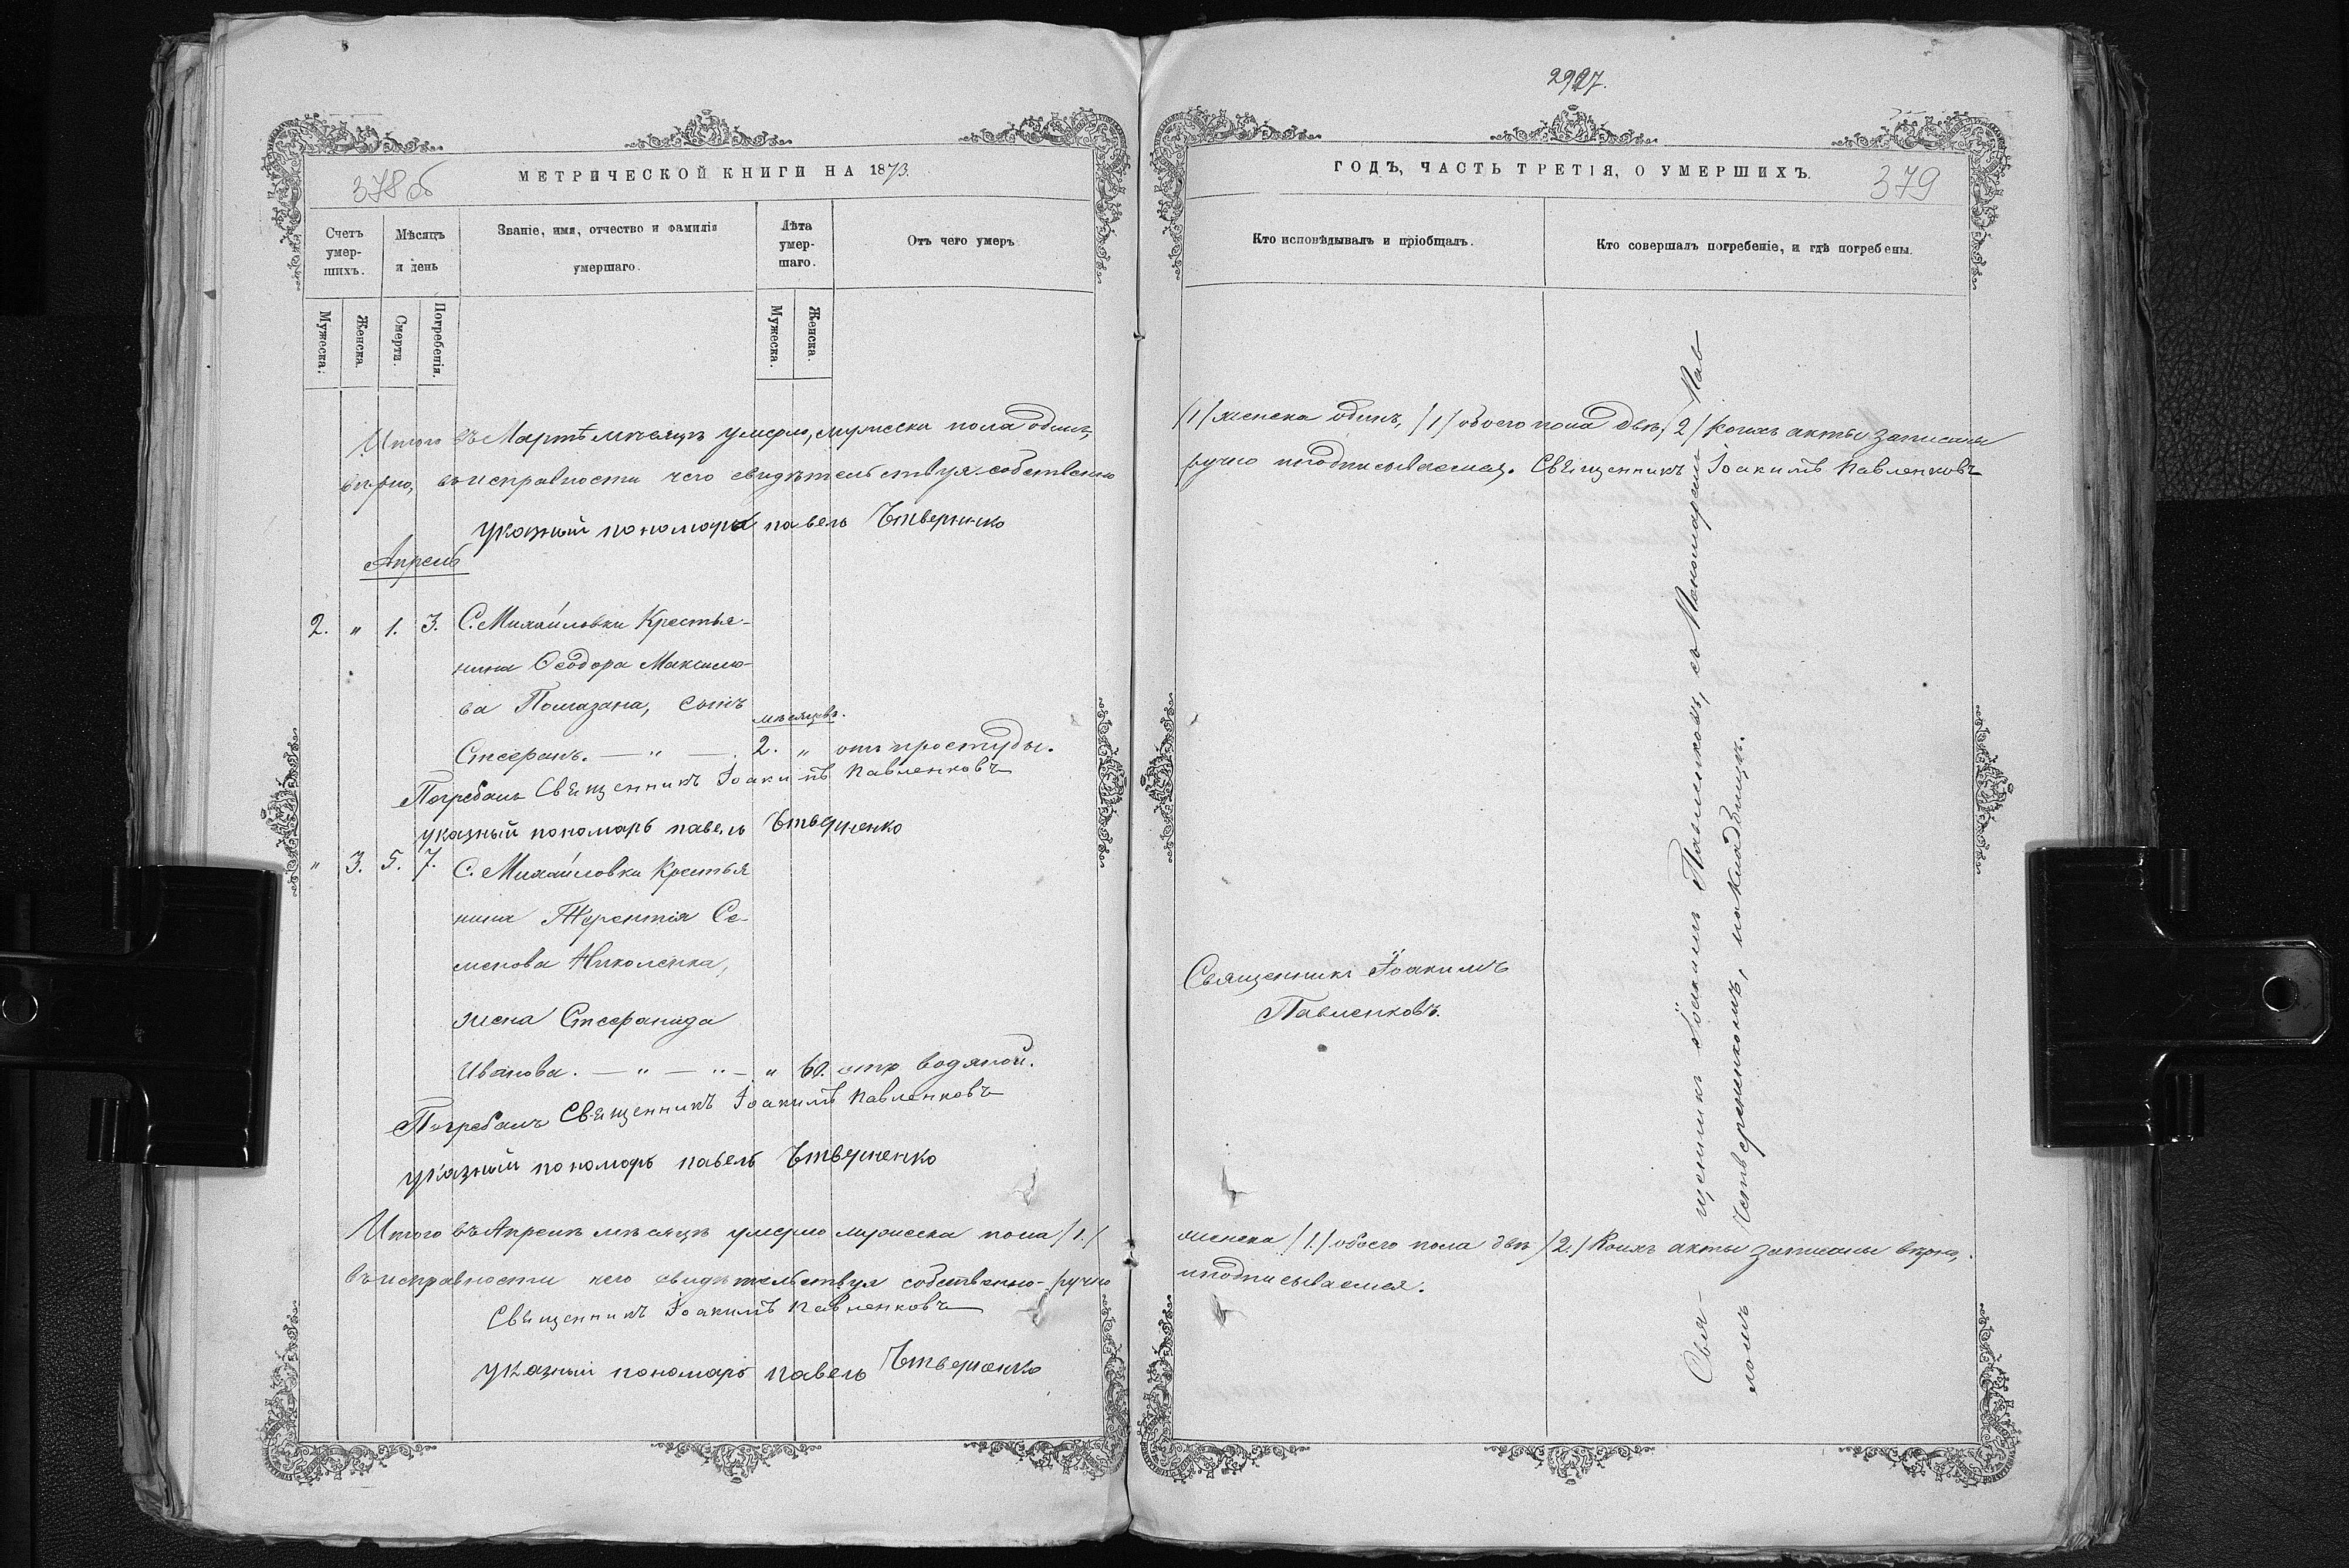 2927.
378об
МЕТРИЧЕСКОЙ КНИГИ НА 1873.
Счетъ умершихъ.
Мѣсяцъ и день
Званіе, имя, отчество и фамилія умершаго.
Лѣта умершаго.
Отъ чего умеръ
Мужеска.
Женска.
Смерти.
Погребенія.
Мужеска.
Женска.
Итого въ Мартѣ мѣсяцѣ умерло, мужеска пола одинъ,
вѣрно, въ исправности чего свидѣтельствуя собственно
указный пономарь павелъ Чтверненко
Апрель
2. " 1. 3. С. Михайловки Крестья-
нина Ѳеодора Максимо-
ва Помазана, сынъ
мѣсяцовъ.
Стефанъ. — " — 2. " отъ простуды.
Погребалъ Священникъ Іоакимъ Павленковъ
указный пономарь павелъ Чтверненко
" 3. 5. 7. С. Михайловки Крестья
нина Терентія Се-
менова Николенка,
жена Стефанида
Иванова. — " — " — " 60. отъ водяной.
Погребалъ Священникъ Іоакимъ Павленковъ
указный пономарь павелъ Чтверненко
Итого въ Апрелѣ мѣсяцѣ умерло мужеска пола /1./
въ исправности чего свидѣтельствуя собственно-ручно
Священникъ Іоакимъ Павленковъ
указный пономарь павелъ Чтверненко
ГОДЪ, ЧАСТЬ ТРЕТІЯ, О УМЕРШИХЪ.
379
Кто исповѣдывалъ и пріобщалъ.
Кто совершалъ погребеніе, и гдѣ погребены.
/1/ женска одинъ, /1/ обоего пола два, /2/ Коихъ акты записаны
ручно и подписываемся. Священникъ Іоакимъ Павленковъ
Священникъ Іоакимъ
Павленковъ.
Свя-щенникъ Іоакимъ Павленковъ, съ Пономаремъ Пав
ломъ Четверненкомъ, на кладбищѣ.
женска /1./ обоего пола два /2./ Коихъ акты записаны вѣрно,
и подписываемся.